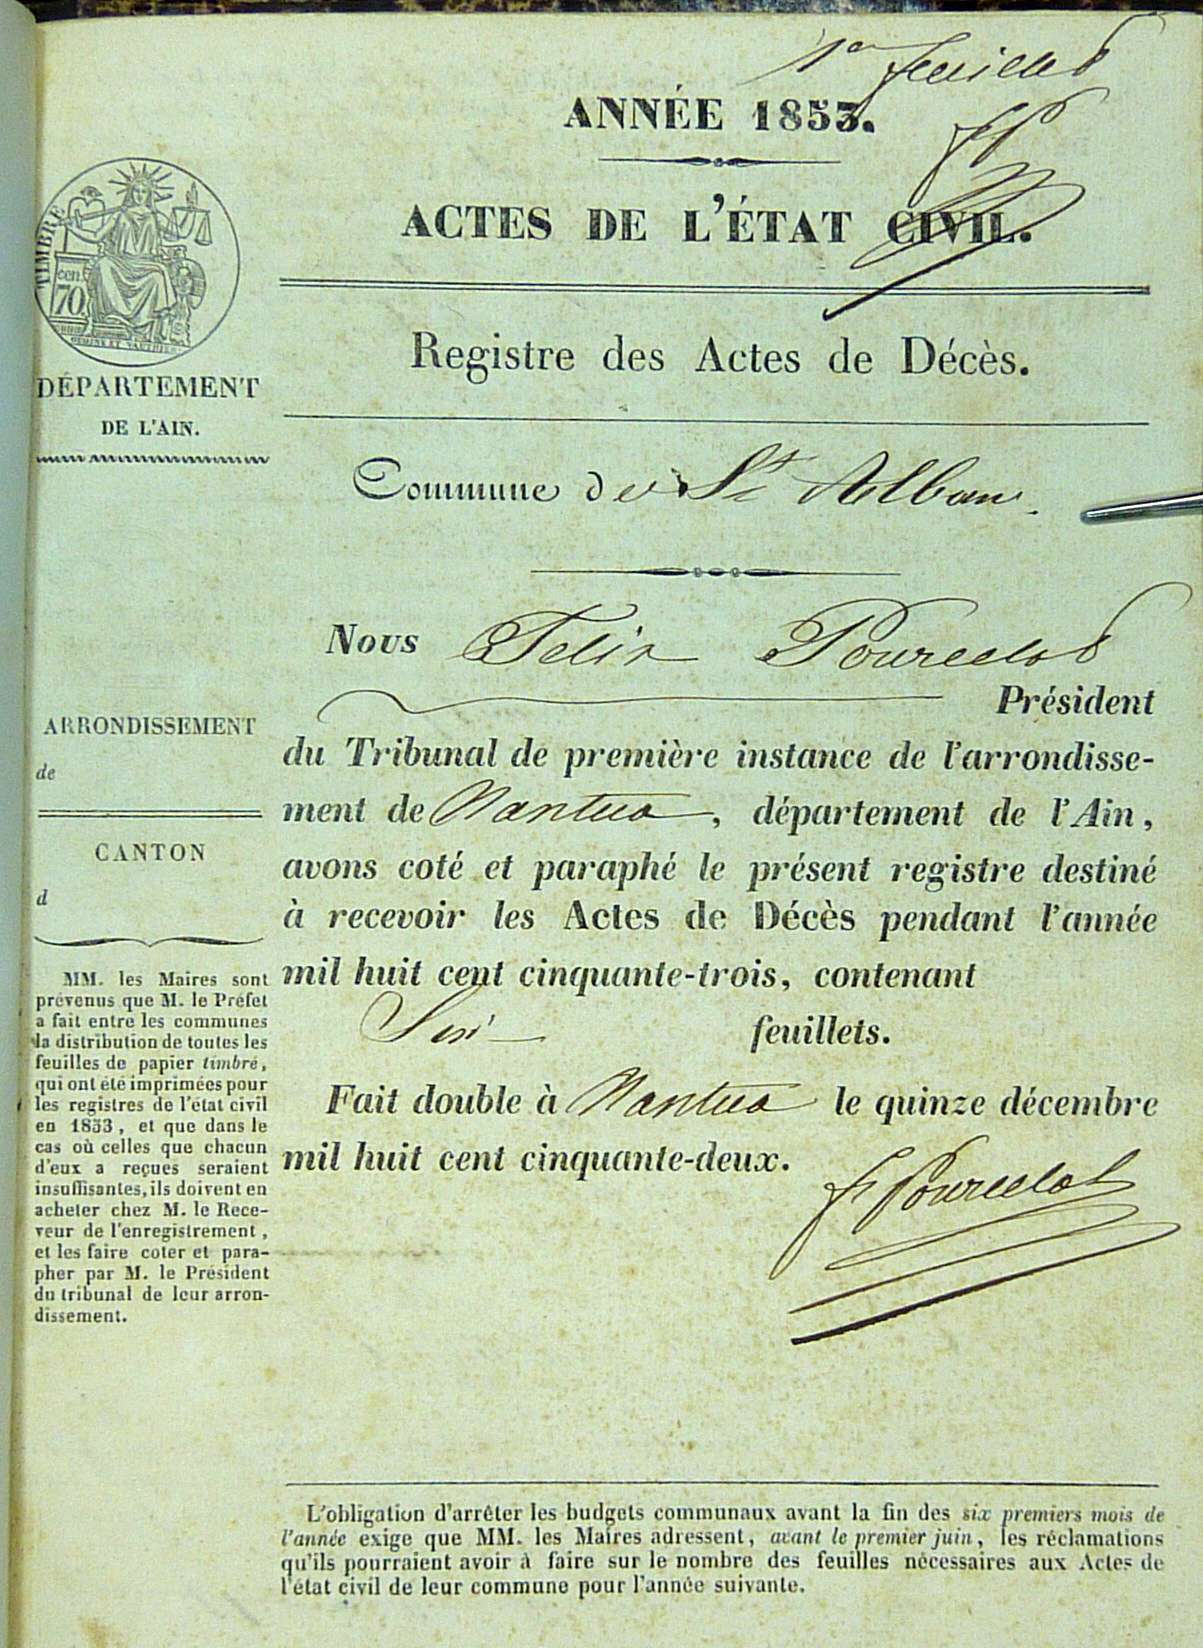 1er feuillet
ANNÉE 1853.
ACTES DE L'ÉTAT CIVIL.
TIMBRE
cen.
70.
DÉPARTEMENT
DE L'AIN.
Registre des Actes de Décès.
Commune de St Alban.
Nous Felix Pourcelot
Président
du Tribunal de première instance de l'arrondisse-
ment de Nantua, département de l'Ain,
avons coté et paraphé le présent registre destiné
à recevoir les Actes de Décès pendant l'année
mil huit cent cinquante-trois, contenant
Six feuillets.
Fait double à Nantua le quinze décembre
mil huit cent cinquante-deux.
f Pourcelot
ARRONDISSEMENT
de
CANTON
d
MM. les Maires sont
prévenus que M. le Préfet
a fait entre les communes
la distribution de toutes les
feuilles de papier timbré,
qui ont été imprimées pour
les registres de l'état civil
en 1853, et que dans le
cas où celles que chacun
d'eux a reçues seraient
insuffisantes, ils doivent en
acheter chez M. le Rece-
veur de l'enregistrement,
et les faire coter et para-
pher par M. le Président
du tribunal de leur arron-
dissement.
L'obligation d'arrêter les budgets communaux avant la fin des six premiers mois de
l'année exige que MM. les Maires adressent, avant le premier juin, les réclamations
qu'ils pourraient avoir à faire sur le nombre des feuilles nécessaires aux Actes de
l'état civil de leur commune pour l'année suivante.